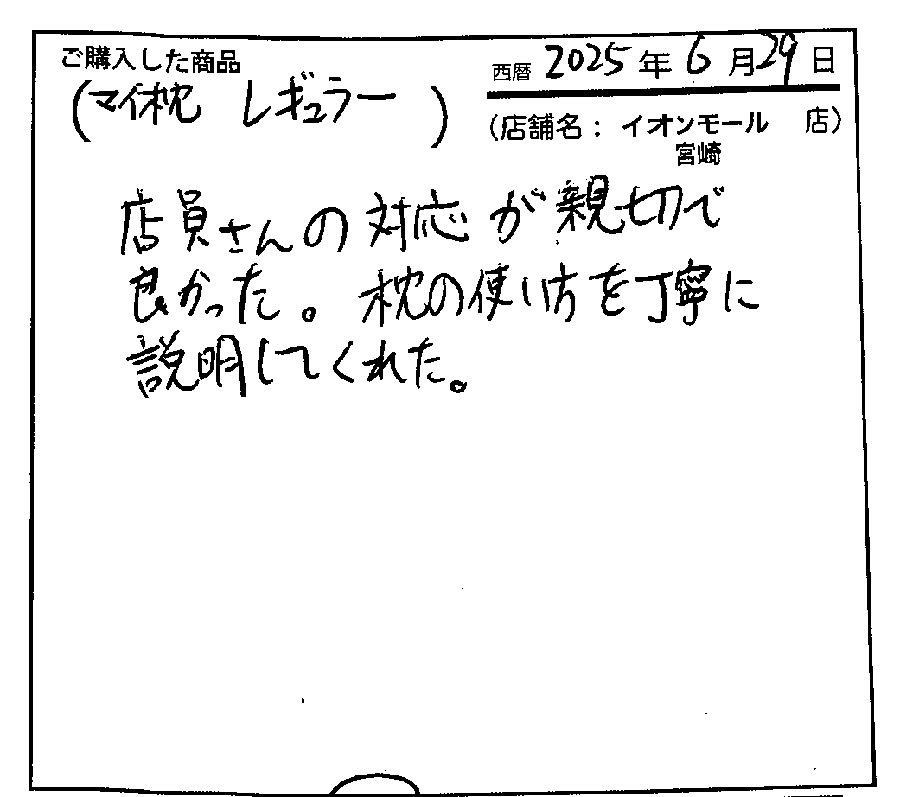 ご購入した商品
西暦 2025 年 6 月 29 日
(マイ枕 レギュラー )
(店舗名: イオンモール 店)
宮崎
店員さんの対応が親切で
良かった。枕の使い方を丁寧に
説明してくれた。